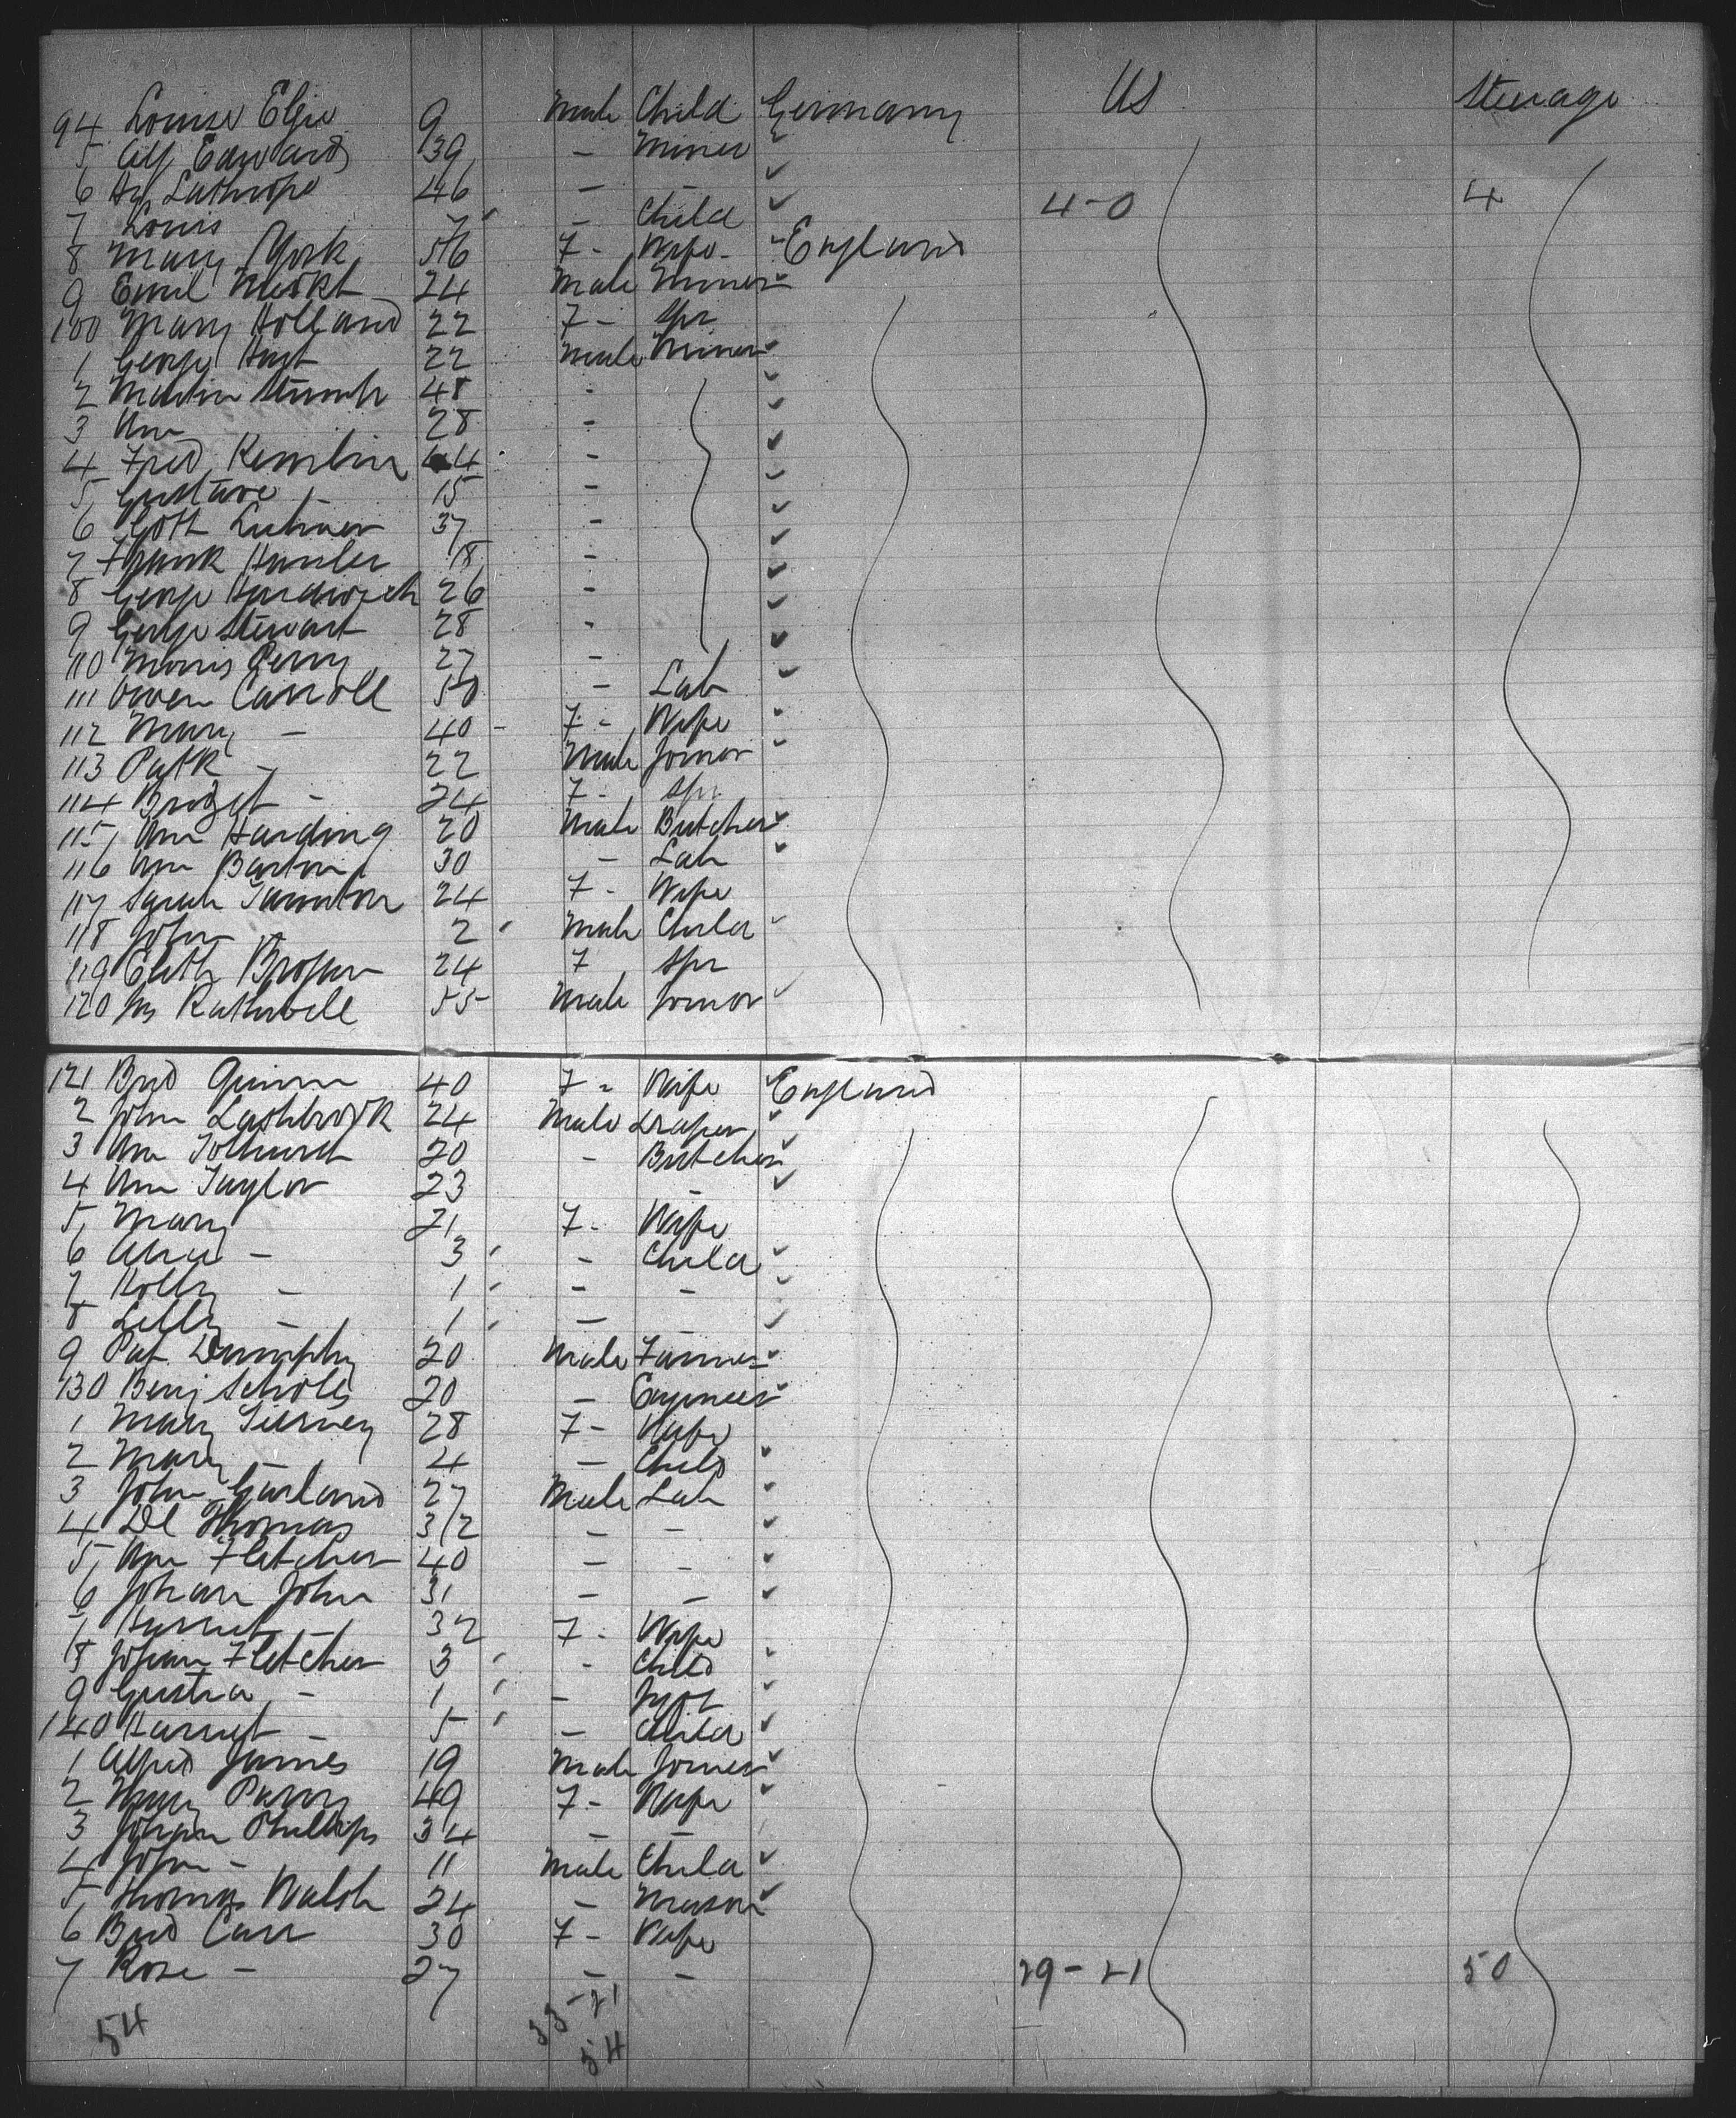 94 Louise Eljie 9 Male Child Germany US Steerage
5 Alf Edwards 39 - Miner
6 Hy Lathrope 46 - - 4-0 4
7 Louis 7 - Child
8 Mary York 56 F- Wife England
9 Emil 24 Male Miner
100 Mary Holland 22 F- Spr
1 George Hart 22 Male Miner
2 Martin Stumb 48 -
3 Wm 28 -
4 Fred 44 -
5 Gustave - 15 -
6 Gott 37 -
7 Frank 18 -
8 George 26 -
9 George Stewart 28 -
110 Morris Perry 27 -
111 Owen Carroll 50 - Lab
112 Mary - 40 - F- Wife
113 Patk - 22 Male Joiner
114 Bridget - 24 F- Spr
115 Wm Harding 20 Male Butcher
116 Wm Barton 30 - Lab
117 Sarah 24 F- Wife
118 John - 2 Male Child
119 Elizth 24 F Spr
120 Jas Rathwell 55 Male Joiner
121 Brid Quinn 40 F- Wife England
2 John Lashbrook 24 Male Draper
3 Wm Tolhurst 20 - Butcher
4 Wm Taylor 23 -
5 Mary 21 F- Wife
6 Alice - 3 - Child
7 Holly - 1 - -
8 Lilly - 1 - -
9 Pat Dumphy 20 Male Farmer
130 Benj Scholes 20 - Engineer
1 Mary Tierney 28 F- Wife
2 Mary - 4 - Child
3 John Garland 27 Male Lab
4 Dl Thomas 32 - -
5 Wm Fletcher 40 - -
6 Johan John 31 - -
7 Harriet - 32 F- Wife
8 Johan Fletcher 3 - Child
9 - 1 - Inft
140 Harriet - 5 - Child
1 Alfred James 19 Male Joiner
2 Mary Parry 49 F- Wife
3 Phillips 34 - -
4 John - 11 Male Child
5 Thomas Walsh 24 - Mason
6 Brid Carr 30 F- Wife
7 Rose - 27 - - 29-21 50
54 33-21
54